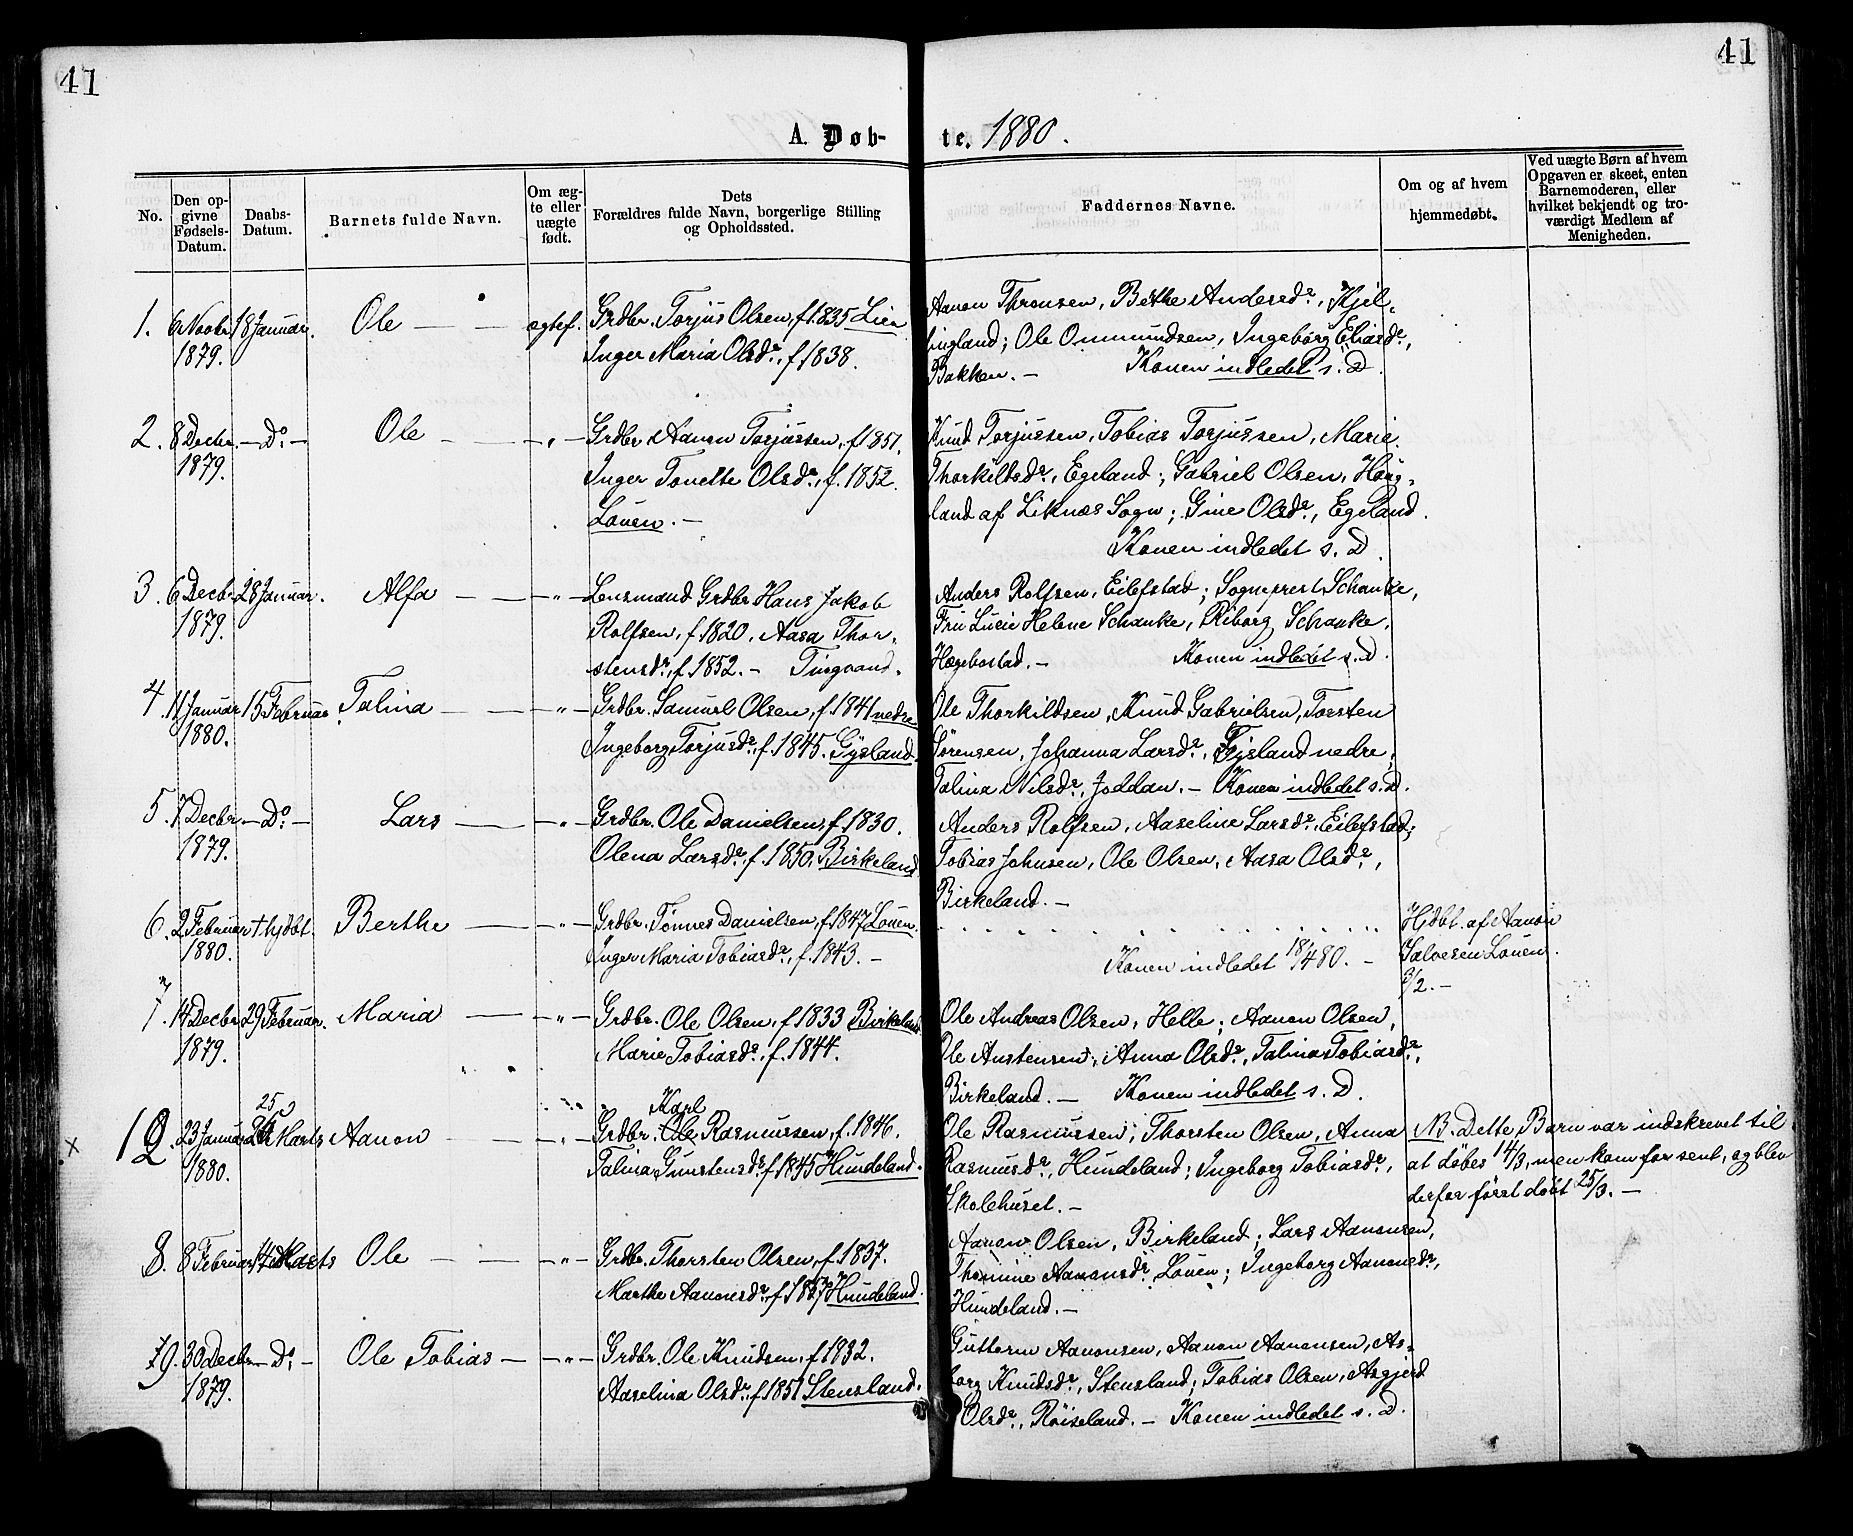 41
41
A. Døb-
te. 1880.
No.
Den op-
givne
Fødsels-
Datum.
Daabs-
Datum.
Barnets fulde Navn.
Om æg-
te eller
uægte
født.
Dets
Forældres fulde Navn, borgerlige Stilling
og Opholdssted.
Faddernes Navne.
Om og af hvem
hjemmedøbt.
Ved uægte Børn af hvem
Opgaven er skeet, enten
Barnemoderen, eller
hvilket bekjendt og tro-
værdigt Medlem af
Menigheden.
1. 6 Novbr. 18 Januar. Ole — — ægtef. Grdbr. Torjus Olsen, f. 1835 Lien
1879. Inger Maria Olsdr., f. 1838.
Aanon Thronsen, Berthe Andersdr., Kjel-
lingland; Ole Ommundsen, Ingeborg Eliasdr.,
Bakken. — Konen indledet s. D.
2. 8 Decbr. — Do. — Ole — — „ — Grdbr. Aanon Torjussen, f. 1851.
1879. Inger Tonette Olsdr., f. 1852.
Louen. —
Knud Torjussen, Tobias Torjussen, Marie
Thorkildsdr., Egeland; Gabriel Olsen, Haug-
land af Liknæs Sogn; Gine Olsdr., Egeland.
Konen indledet s. D.
3. 6 Decbr. 28 Januar. Alfa — — „ — Lensmand Grdbr. Hans Jakob
1879. Rolfsen, f. 1820, Aasa Thor-
stensdr., f. 1852. — Tingvand.
Anders Rolfsen, Eilefstad; Sogneprest Schanke,
Fru Lucie Helene Schanke, Riborg Schanke,
Hægebostad. — Konen indledet s. D.
4. 11 Januar 15 Februar Talina — — „ — Grdbr. Samuel Olsen, f. 1841 nedre
1880. Ingeborg Torjusdr., f. 1845. Gysland.
Ole Thorkildsen, Knud Gabrielsen, Torsten
Sørensen, Johanna Larsdr., Gysland nedre;
Talina Nilsdr., Joddan. — Konen indledet s. D.
5. 7 Decbr. — Do. — Lars — — „ — Grdbr. Ole Danielsen, f. 1830.
1879. Olena Larsdr., f. 1850. Birkeland
Anders Rolfsen, Aaseline Larsdr., Eilefstad;
Tobias Johnsen, Ole Olsen, Aasa Olsdr.,
Birkeland. —
6. 2 Februar † hjdbt. Berthe — — „ — Grdbr. Tønnes Danielsen, f. 1847 Louen.
1880. Inger Maria Tobiasdr., f. 1843. —
Konen indledet 18/4 80. —
Hjdbt. af Aanon
Salvesen Louen.
3/2. —
7. 14 Decbr. 29 Februar. Maria — — „ — Grdbr. Ole Olsen, f. 1833 Birkeland
1879. Marie Tobiasdr., f. 1844.
Ole Andreas Olsen, Helle; Aanon Olsen,
Ole Austensen, Anna Olsdr., Talina Tobiasdr.,
Birkeland. — Konen indledet s. D.
25
Karl
x 12. 23 Januar Marts Aanon — — „ — Grdbr. Ole Rasmussen, f. 1846.
1880. Talina Gunstensdr. f. 1845 Hundeland.
Ole Rasmussen, Thorsten Olsen, Anna
Rasmusdr., Hundeland; Ingeborg Tobiasdr.,
Skolehuset. —
NB. Dette Barn var indskrevet til
at døbes 14/3, men kom for sent, og blev
derfor først døbt 25/3. —
8. 8 Februar 14 Marts Ole — — „ — Grdbr. Thorsten Olsen, f. 1837.
Marthe Aanonsdr., f. 1837 Hundeland.
Aanon Olsen, Birkeland; Lars Aanonsen,
Thomine Aanonsdr., Louen; Ingeborg Aanonsdr.,
Hundeland. —
9. 30 Decbr. — Do. — Ole Tobias — — „ — Grdbr. Ole Knudsen, f. 1832.
1879. Aaselina Olsdr., f. 1851 Stensland.
Guttorm Aanonsen, Aanon Aanonsen, As-
borg Knudsdr., Stensland; Tobias Olsen, Asgjerd
Olsdr., Røiseland. — Konen indledet s. D.